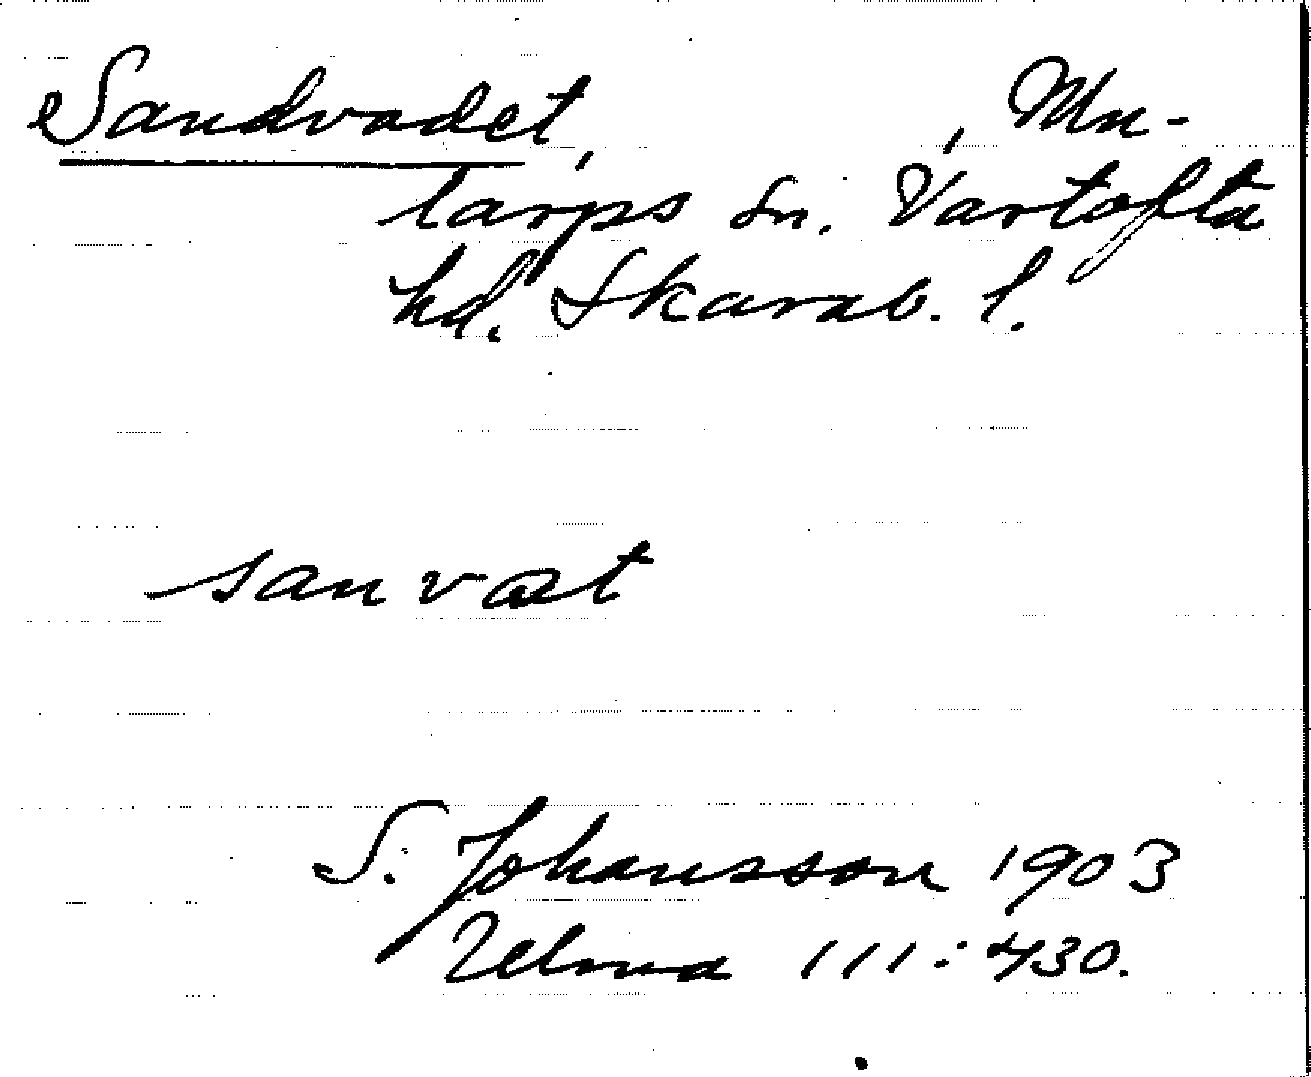 Sandvadet, , Mu-
larps sn. Vartofta
hd. Skarab. l.
san vat
S. Johansson 1903
Ulma 111:430.